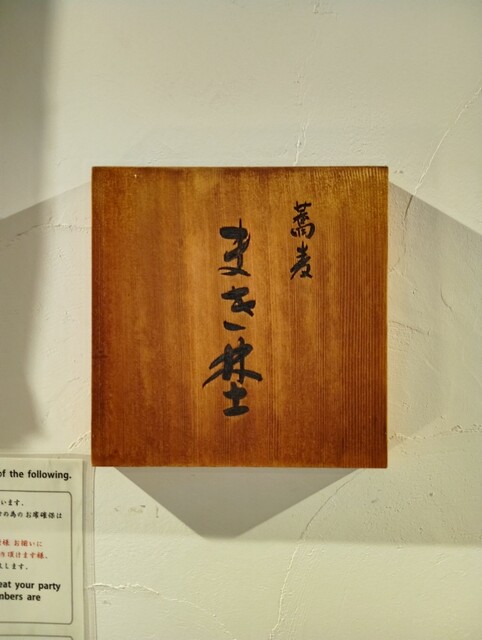 蕎麦
まき埜
of the following.
います。
の為のお席確保は
様 お揃いに
頂けます様、
します。
eat your party
mbers are